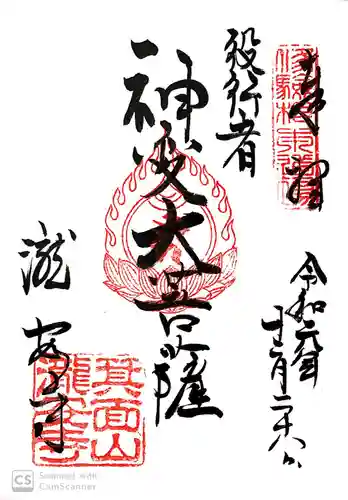 奉拝
役行者
神変大菩薩
令和元年十二月二十八日
瀧安寺
箕面山瀧安寺
CS Scanned with CamScanner